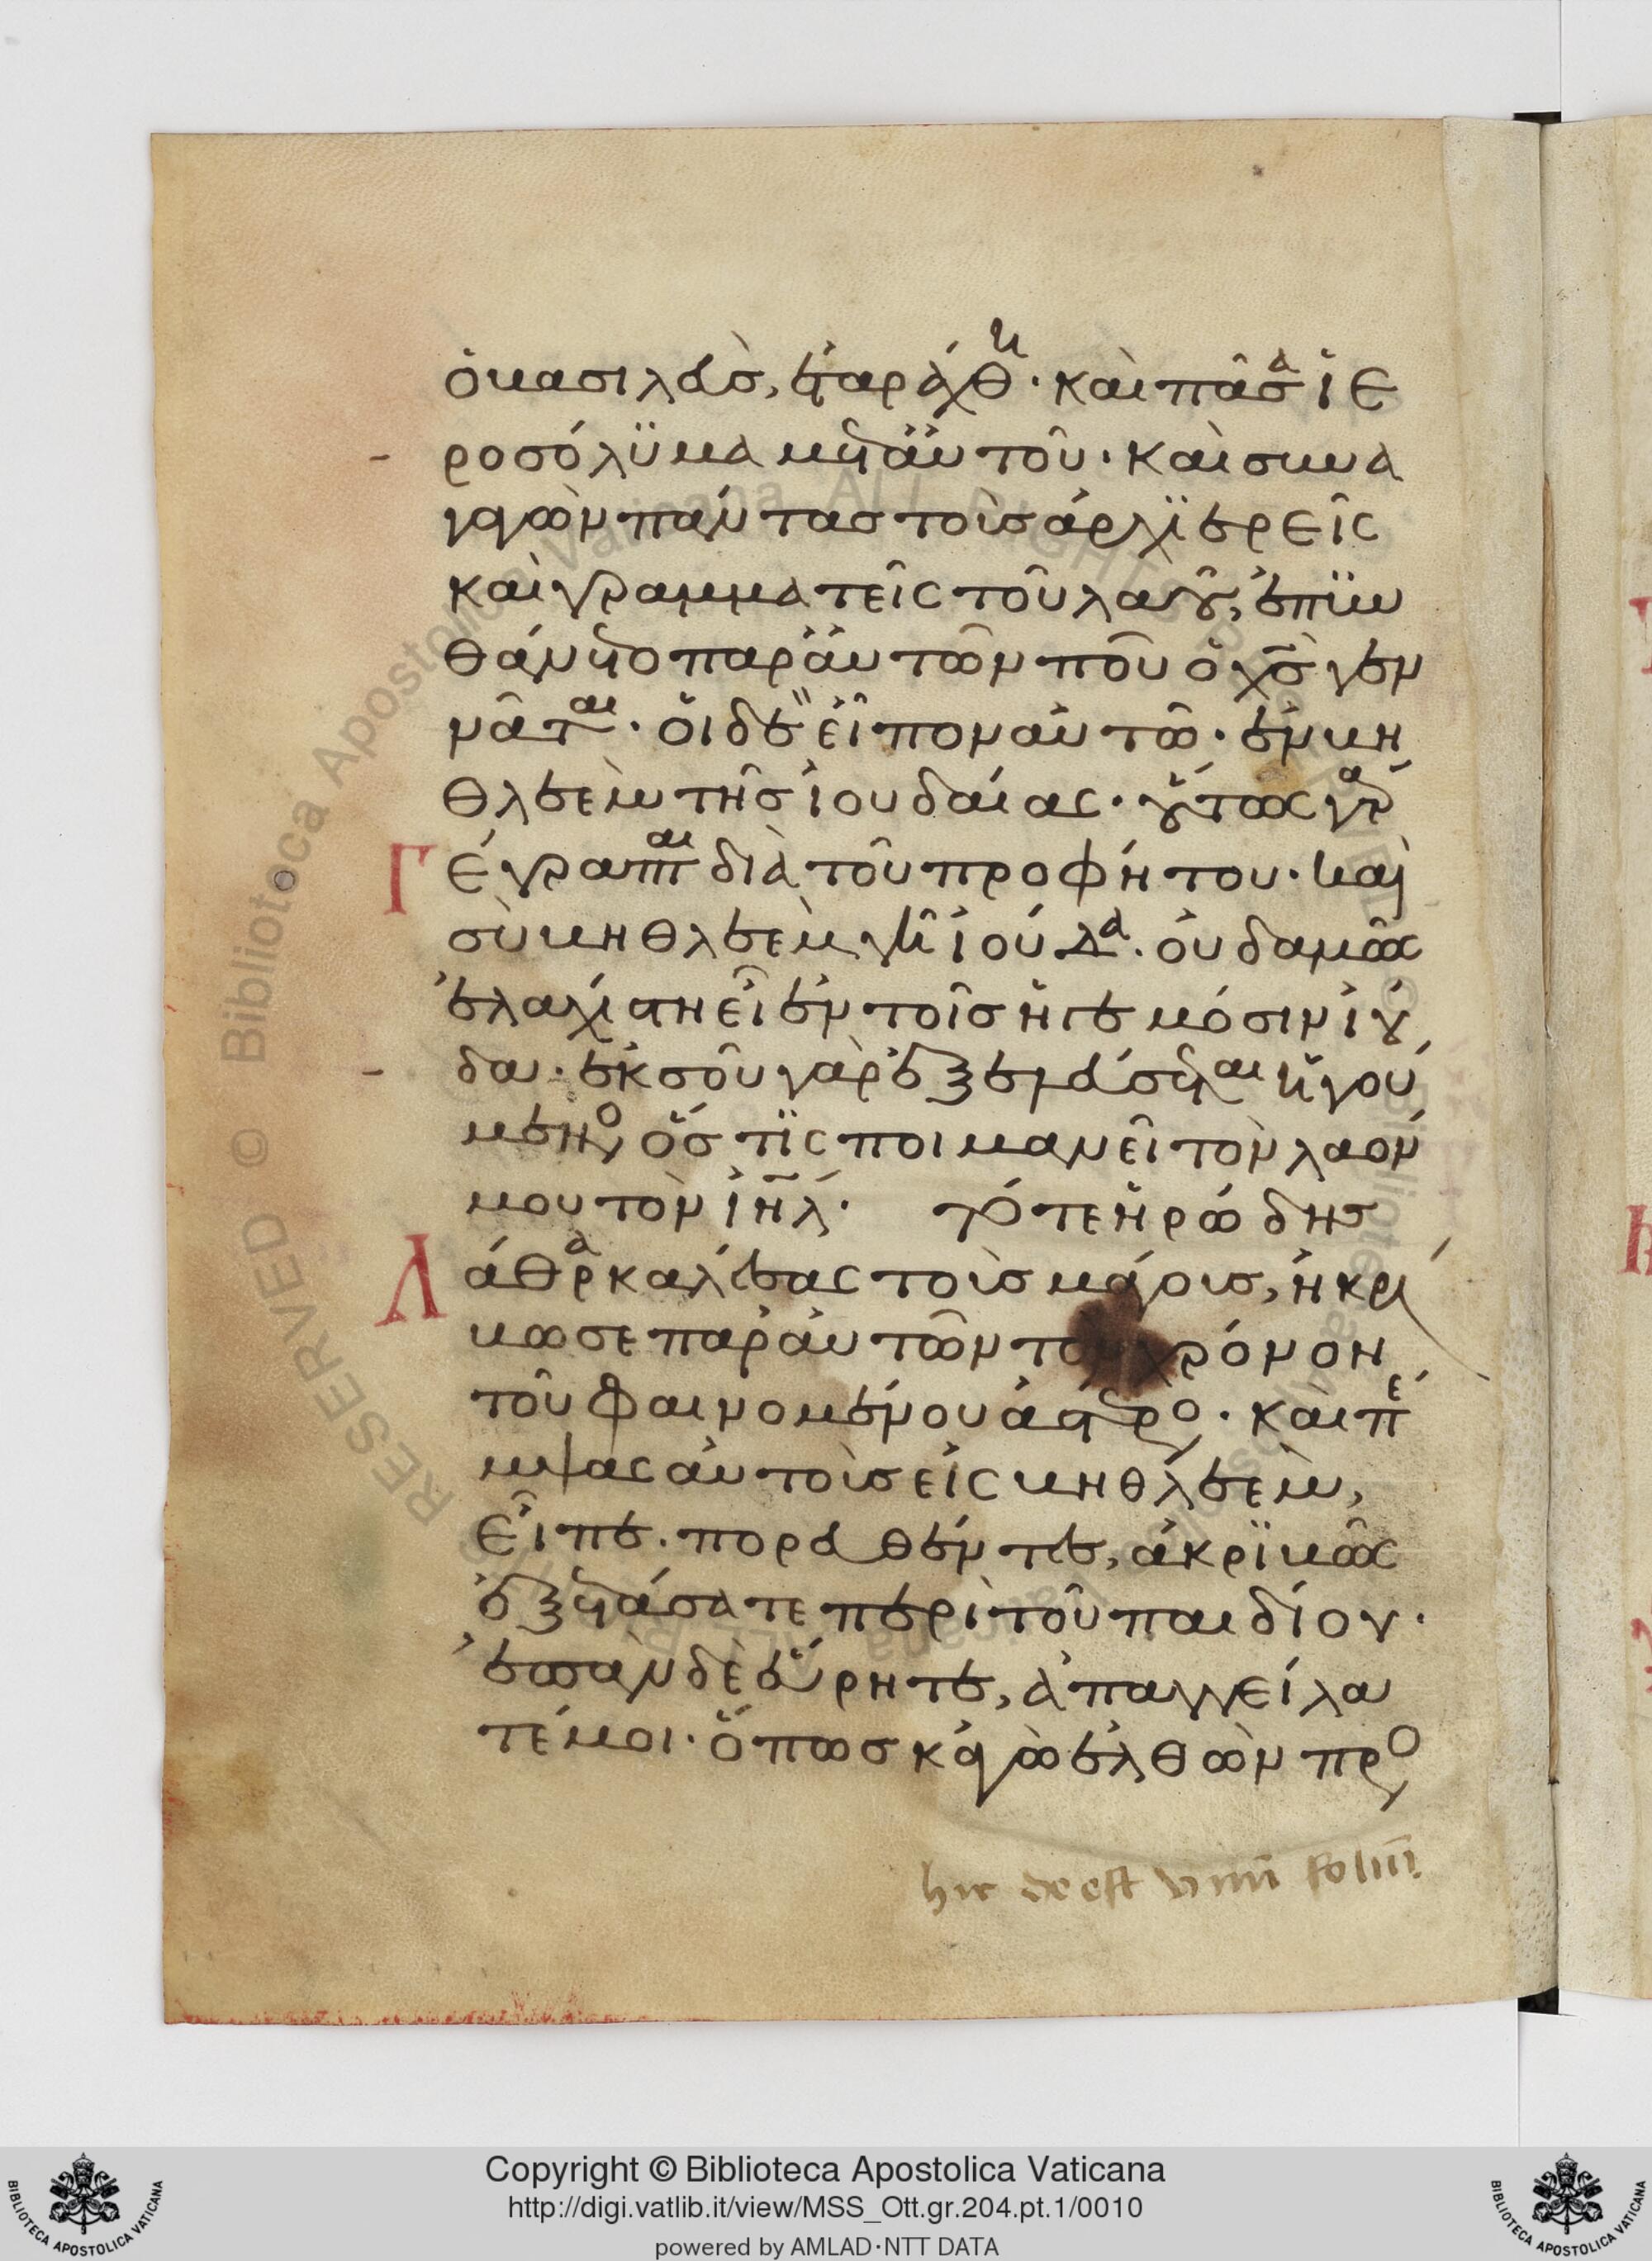 ὁ βασιλεὺς, ἐταράχθη· καὶ πᾶσα ἱε
ροσόλϋμα μετ' ἀυτοῦ· καὶ συνα
γαγὼν πάντας τοὺς ἀρχϊερεῖς
καὶ γραμματεῖς τοῦ λαοῦ, ἐπϋν
θάνετο παρ' ἀυτῶν ποῦ ὁ χς̅ γεν
νᾶται· ὁι δὲ εἶπον ἀυτῶ· ἐν βη
θλεεμ τῆς ἰουδαίας· ὅυτως γὰρ
Γέγραπται διὰ τοῦ προφήτου· καὶ
σὺ βηθλεὲμ γῆ ἰούδα· ὀυδαμῶς
ἐλαχίστη εἶ ἐν τοῖς ἡγεμόσιν ἰού
δα· ἐκ σοῦ γὰρ ἐξελεύσεται ἡγού
μενος ὅστϊς ποιμανεῖ τὸν λαόν
μου τὸν ιηλ̅· τότε ἡρώδης
Λάθρα καλέσας τοὺς μάγους, ἠκρί
βωσε παρ' ἀυτῶν τὸν χρόνον
τοῦ φαινομένου ἀστέρος· καὶ πέ
μψας ἀυτοὺς εἰς βηθλεὲμ,
εἶπε· πορευθέντες, ἀκρϊβῶς
ἐξετάσατε περὶ τοῦ παιδίου·
ἐπὰν δὲ ἕυρητε, ἀπαγγείλα
τέ μοι· ὅπως κἀγὼ ἐλθὼν προς
hic deest vnum folium
Copyright © Biblioteca Apostolica Vaticana
http://digi.vatlib.it/view/MSS_Ott.gr.204.pt.1/0010
powered by AMLAD·NTT DATA